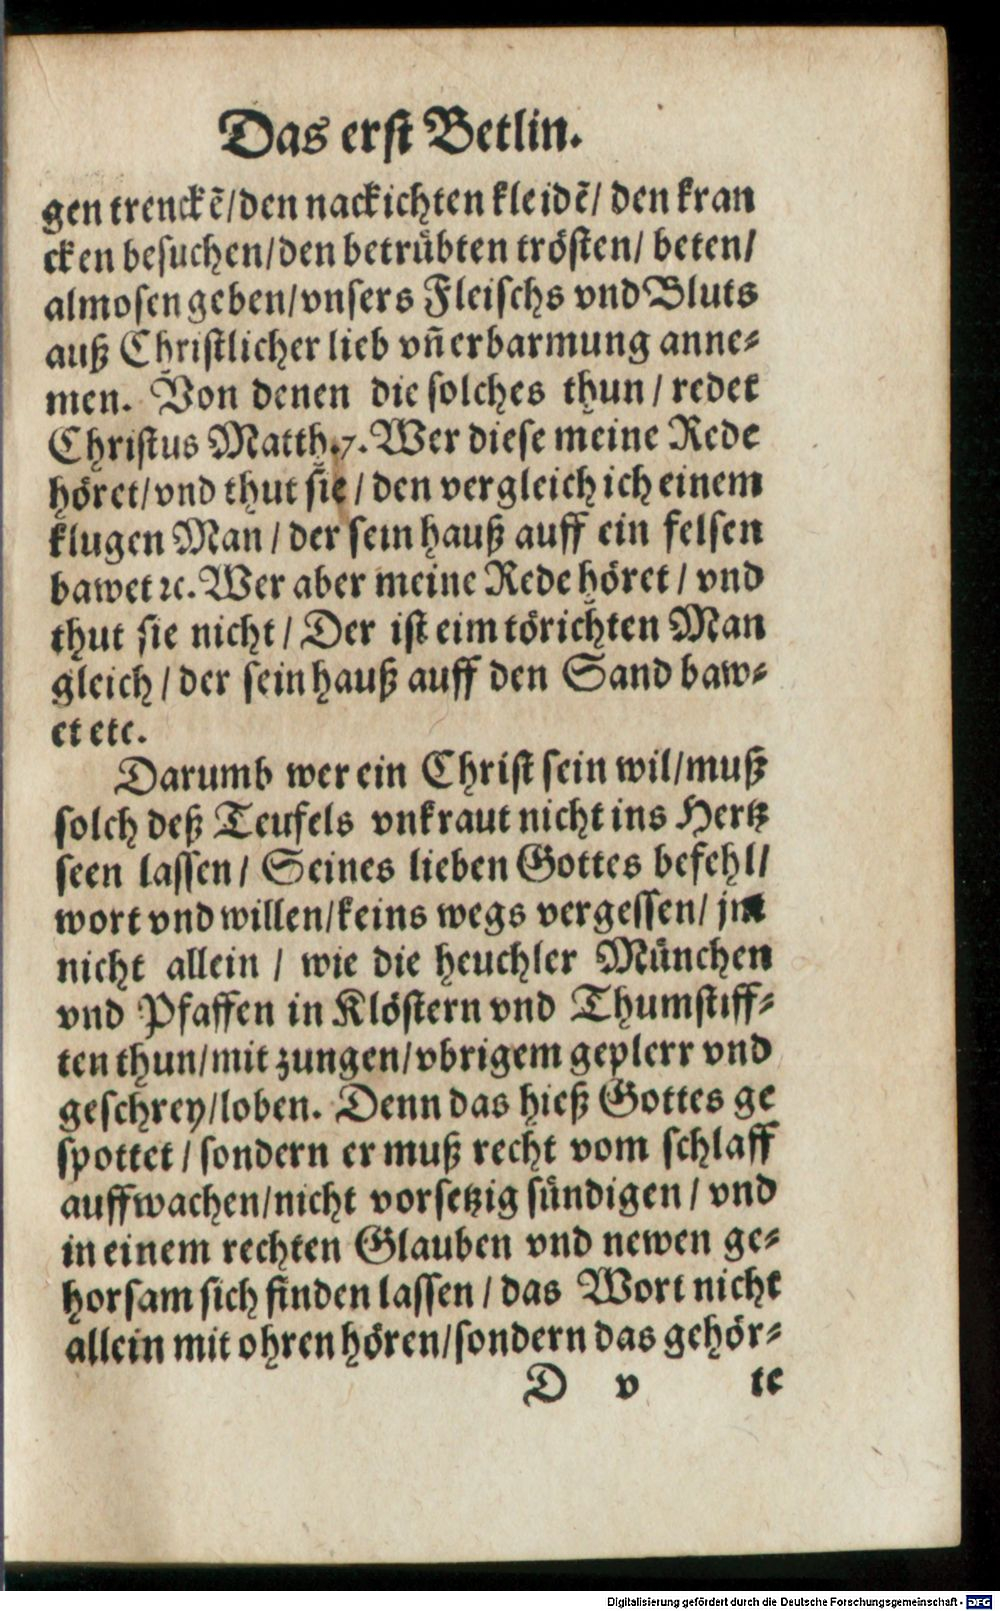 Das erst Betlin.
gen trenckē/den nackichten kleidē/ den kran
cken besuchen/den betrübten trösten/ beten/
almosen geben/vnsers Fleischs vnd Bluts
auß Christlicher lieb vñ erbarmung anne-
men. Von denen die solches thun/ redet
Christus Matth.7. Wer diese meine Rede
höret/vnd thut sie/ den vergleich ich einem
klugen Man/ der sein hauß auff ein felsen
bawet ꝛc. Wer aber meine Rede höret/ vnd
thut sie nicht/ Der ist eim törichten Man
gleich/ der sein hauß auff den Sand baw-
et etc.
Darumb wer ein Christ sein wil/muß
solch deß Teufels vnkraut nicht ins Hertz
seen lassen/ Seines lieben Gottes befehl/
wort vnd willen/keins wegs vergessen/
nicht allein/ wie die heuchler München
vnd Pfaffen in Klöstern vnd Thumstiff-
ten thun/mit zungen/vbrigem geplerr vnd
geschrey/loben. Denn das hieß Gottes ge
spottet/ sondern er muß recht vom schlaff
auffwachen/nicht vorsetzig sündigen/ vnd
in einem rechten Glauben vnd newen ge-
horsam sich finden lassen/ das Wort nicht
allein mit ohren hören/sondern das gehör-
D v te
Digitalisierung gefördert durch die Deutsche Forschungsgemeinschaft - DFG